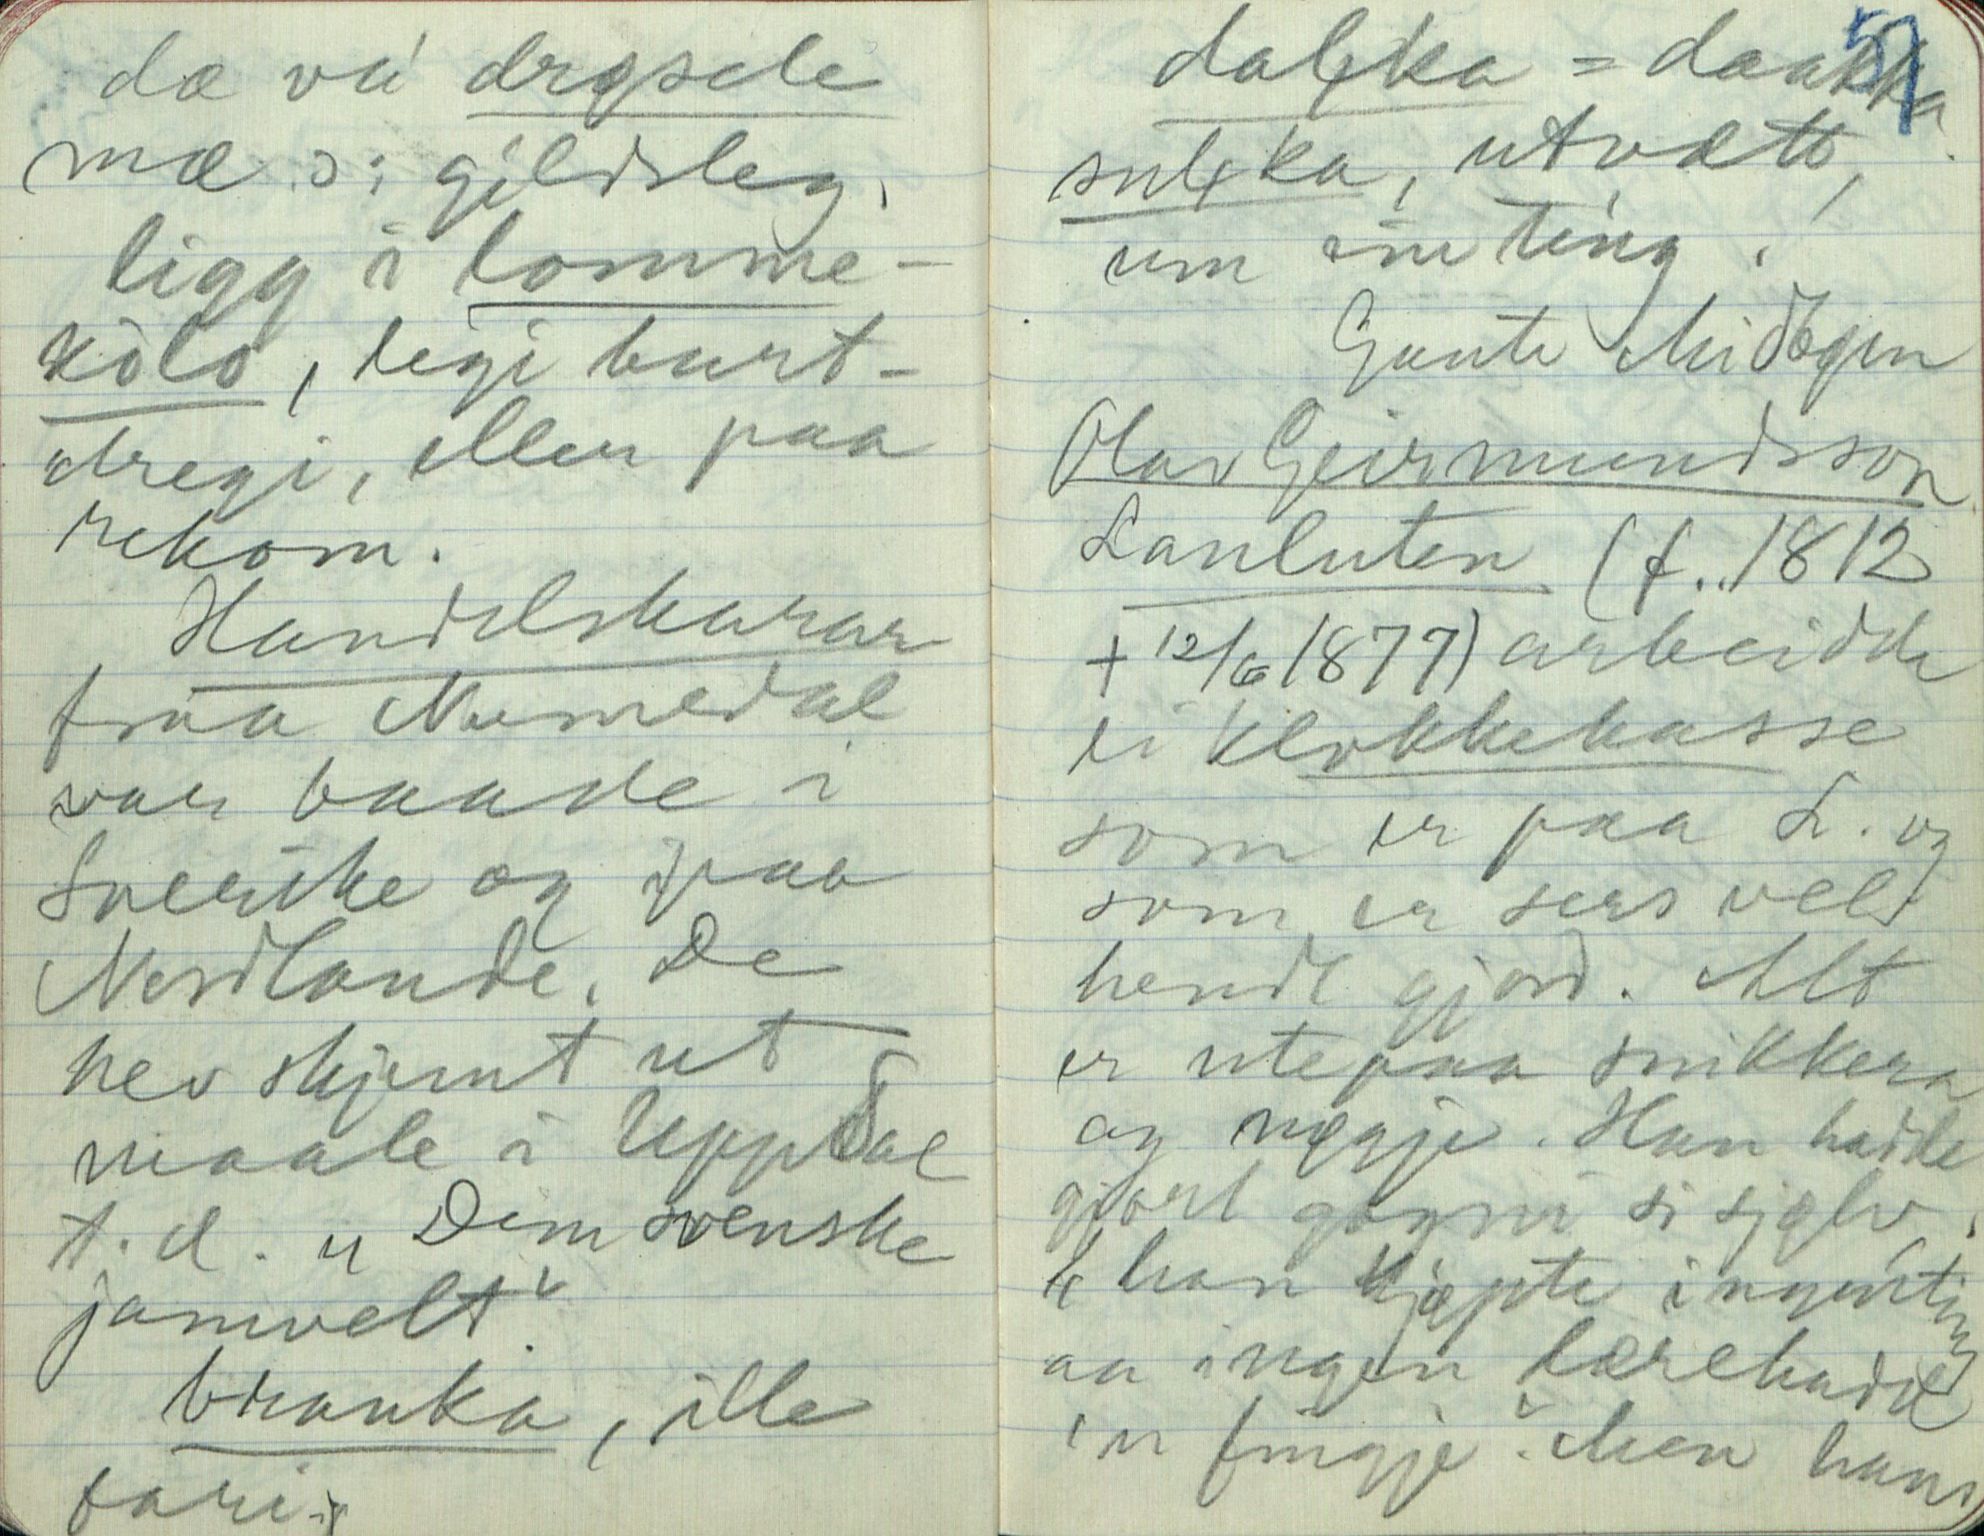 dæ va' drøsele
mæ si gjildsleg.
ligg i lomme-
kolo, ligi burt-
dregi, eller paa
rekom.
Handelskarar
fraa Numedal
var baade i
Sverike og paa
Nordlande. De
hev skjemt ut
maale i Uppdal
t. d. "Dem svenske
jamvelt"
branka, ille
fari.
57
dalka = daakka
sulka, utvætt,
um ein ting.
Gunte Midbøen
Olav Geirmundsson
Lauluten (f.. 1812
+ 12/6 1877) arbeidde
ei klokkekasse
som er paa L. og
som er sers vel
hendt gjord. Alt
er utepaa snikkera
og nøgje. Han hadde
gjort gogni si sjølv,
"han kjøpte ingenting
aa ingen lærehadde
'n fingje". Men hans